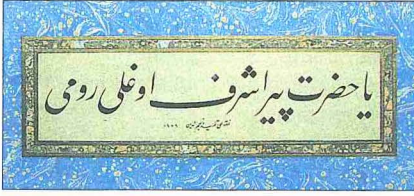 يا حضرت پير اشرف اوغلی رومی